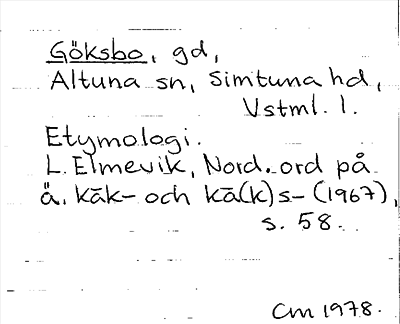 Göksbo, gd,
Altuna sn, Simtuna hd,
Vstml. l.
Etymologi.
L. Elmevik, Nord. ord på
ä. kāk- och kā(k)s- (1967),
s. 58.
Cm 1978.